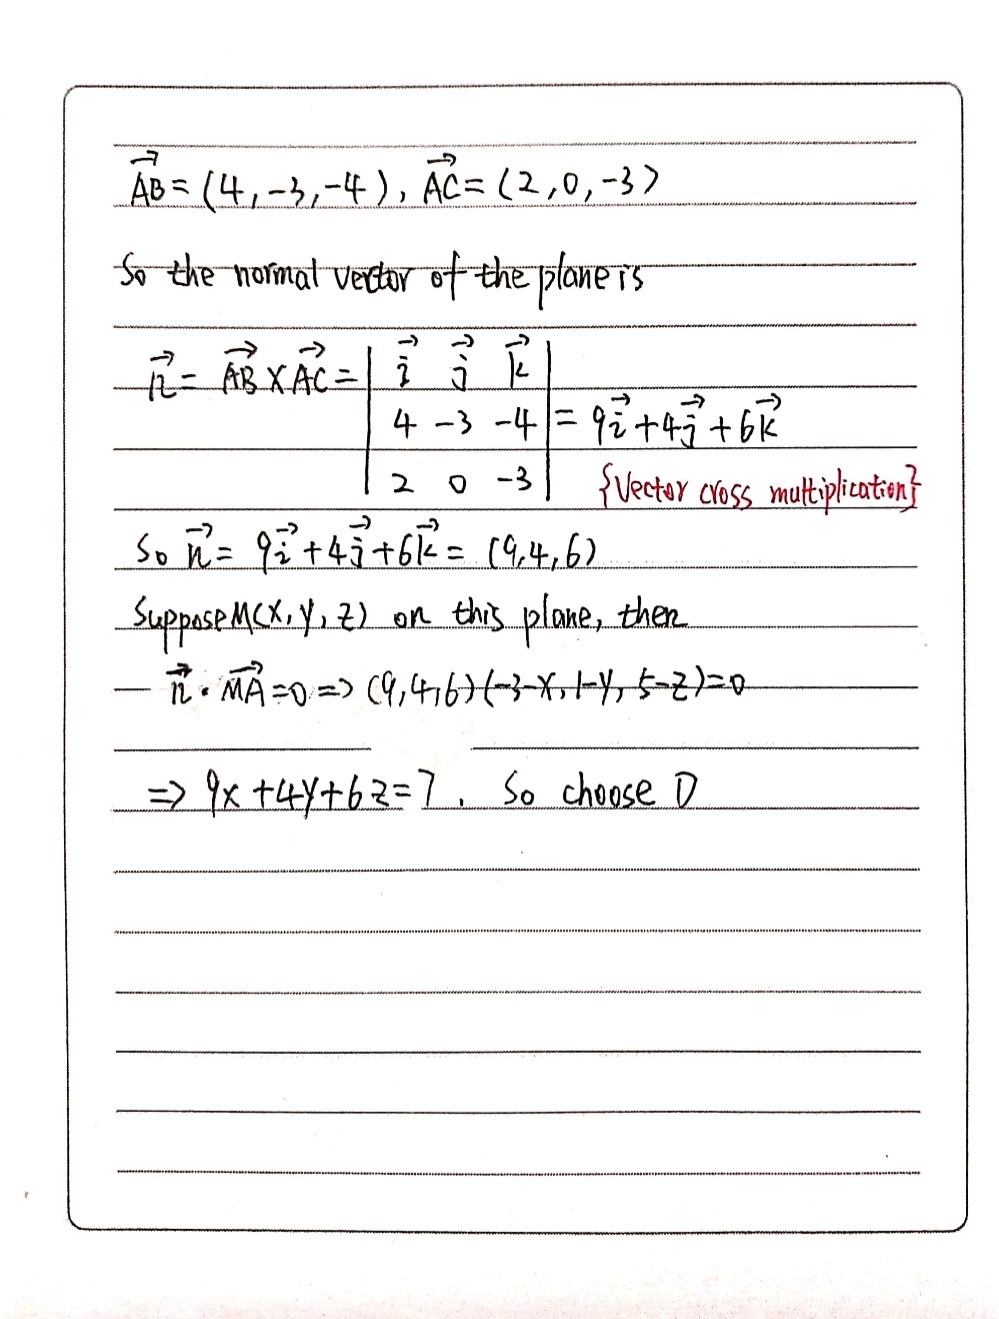 AB⃗ = (4, -3, -4), AC⃗ = (2, 0, -3)
So the normal vector of the plane is
n⃗ = AB⃗ × AC⃗ = | i⃗ j⃗ k⃗ |
| 4 -3 -4 | = 9i⃗ + 4j⃗ + 6k⃗
| 2 0 -3 | {Vector cross multiplication}
So n⃗ = 9i⃗ + 4j⃗ + 6k⃗ = (9, 4, 6)
Suppose M(x, y, z) on this plane, then
n⃗ · MA⃗ = 0 => (9, 4, 6)(-3-x, 1-y, 5-z) = 0
=> 9x + 4y + 6z = 7. So choose D